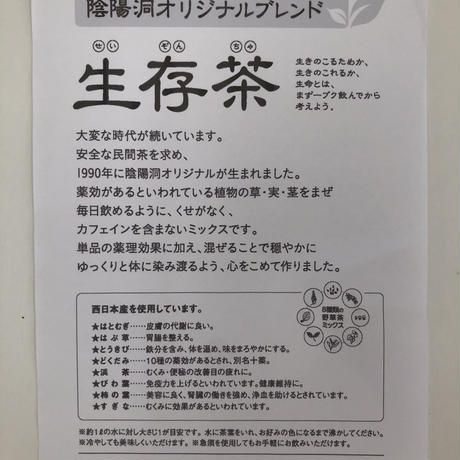 陰陽洞オリジナルブレンド
せい ぞん ちゃ
生存茶
生きのこるためか、
生きのこれるか、
生命とは、
まず一プク飲んでから
考えよう。
大変な時代が続いています。
安全な民間茶を求め、
1990年に陰陽洞オリジナルが生まれました。
薬効があるといわれている植物の草・実・茎をまぜ
毎日飲めるように、くせがなく、
カフェインを含まないミックスです。
単品の薬理効果に加え、混ぜることで穏やかに
ゆっくりと体に染み渡るよう、心をこめて作りました。
西日本産を使用しています。
★はとむぎ……皮膚の代謝に良い。
★はぶ草……胃腸を整える。
★とうきび……鉄分を含み、体を温め、味をまろやかにする。
★どくだみ……10種の薬効があるとされ、別名十薬。
★浜茶……むくみ・便秘の改善目の疲れに。
★びわ葉……免疫力を上げるといわれています。健康維持に。
★柿の葉……美容に良く、腎臓の働きを強め、浄血を助けるとされています。
★すぎな……むくみに効果があるといわれています。
8種類の
野草茶
ミックス
※約1ℓの水に対し大さじ1が目安です。水に茶葉をいれ、お好みの色になるまで沸かしてください。
※冷やしても美味しくいただけます。※急須を使用してもお手軽にお飲みいただけます。